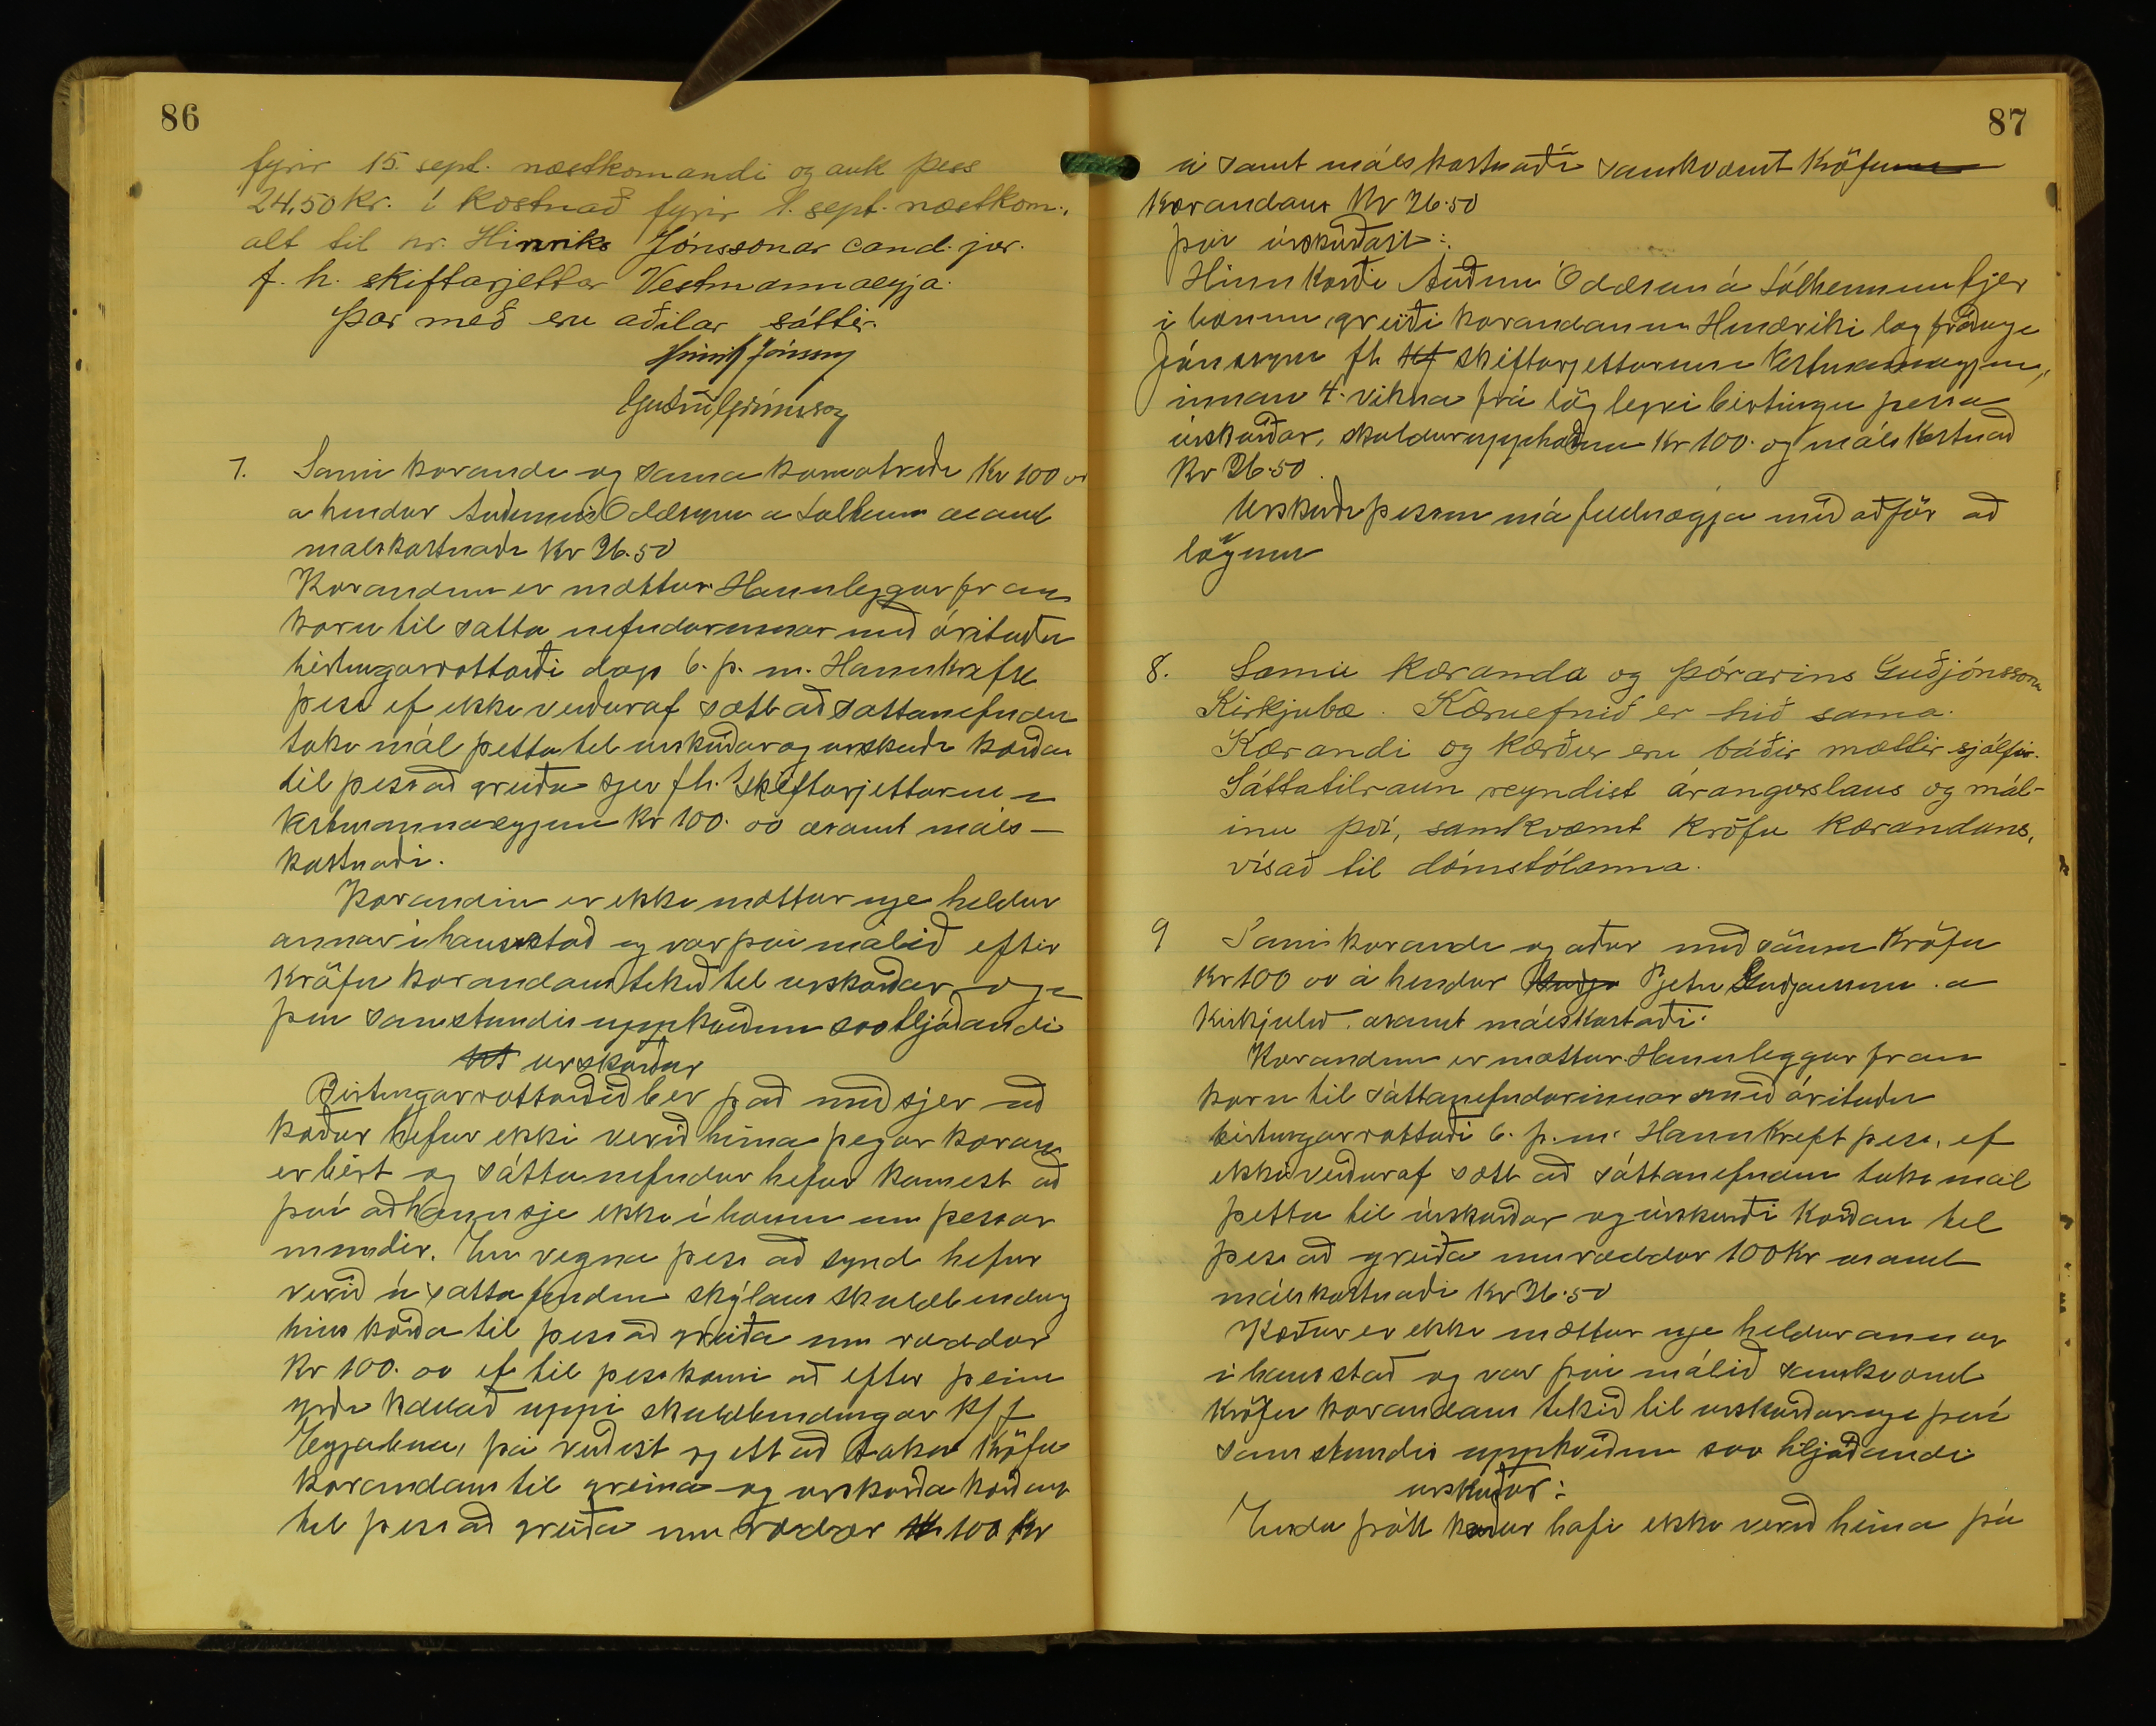 86
fyrir 15. sept. næstkomandi og auk þess
24,50 kr. í kostnað fyrir 1. sept. næstkom.,
alt til hr. Hinriks Jónssonar cand. jur.
f. h. skiftarjettar Vestmannaeyja.
Þar með eru aðilar sáttir.
Hinrik Jónsson
7. Sami kærandi og sama kæruatriði Kr 100 00
a hendur Auðunni Oddssyni a Sólheimum asamt
malskostnaði Kr 26.50
Kærandinn er mættur. Hann leggur fram
kæru til satta nefndarinnar með árituðu
birtingarvottorði dags 6. þ. m. Hann krefst
þess ef ekki verður af sætt að sattanefndin
taki mál þetta til urskurðar og urskurði kærðan
til þess að greiða sjer fh. skiftarjettarins í
Vestmannaeyjum Kr 100. 00 asamt máls-
kostnaði.
Kærandin er ekki mættur nje heldur
annar i hans stað og var því málið eftir
kröfu kærandans tekið til urskurðar og
því samstundis uppkveðinn svohljóðandi
urskurður
Birtingarvottorðið ber það með sjer að
kærður hefur ekki verið heima þegar kæran
er birt og sáttanefndin hefur komist að
því að hann sje ekki í bænum um þessar
mundir. En vegna þess að synd hefur
verið á sattafundin skýlaus skuldbinding
hins kærða til þess að greiða um ræddar
Kr 100. 00 ef til þess kæmi að eftir þeim
yrði kallað uppi skuldbindingar H/f
Eyjabúa, þá virðist rjett að taka kröfu
kærandans til greina og urskurða kærðan
til þess að greiða umræddar 100 Kr
87
á samt málskostnaði samkvæmt kröfu
kærandans Kr 26.50
því úrskurðast:
Hinn kærði Auðunn Oddsson á Sólheimum hjer
i bænum, greiði kærandanum Hindriki lögfræðingi
Jónssyni fh skiftarjettarins Vestmannaeyjum,
innan 4. vikna frá löglegri birtingu þessa
úrskurðar, skuldarupphæðina Kr 100. og málskostnað
Kr 26.50.
Urskurði þessum má fullnægja með aðför að
lögum
8. Sami kæranda og Þórarins Guðjónssonar
Kirkjubæ. Kæruefnið er hið sama.
Kærandi og kærður eru báðir mættir sjálfir.
Sáttatilraun reyndist árangurslaus og mál-
inu því, samkvæmt kröfu kærandans,
vísað til dómstólanna.
9 Sami kærandi og aður með sömu kröfu
Kr 100 00 á hendur Pjetri Guðjonssyni a
Kirkjubæ. asamt málskostaði.
Kærandinn er mættur. Hann leggur fram
kæru til sáttanefndarinnar með árituðu
birtingarvottorði 6. þ.m. Hann krefst þess, ef
ekki verður af sætt að sáttanefndin taki mál
þetta til úrskurðar og úrskurði kærðan til
þess að greiða umræddar 100 Kr asamt
málskostnaði Kr 26.50
Kærður er ekki mættur nje heldur annar
i hans stað og var því málið samkvæmt
kröfu kærandans tekið til urskurðar og því
samstundis uppkveðinn svo hljóðandi
urskurður:
Enda þótt kærður hafi ekki verið heima þá